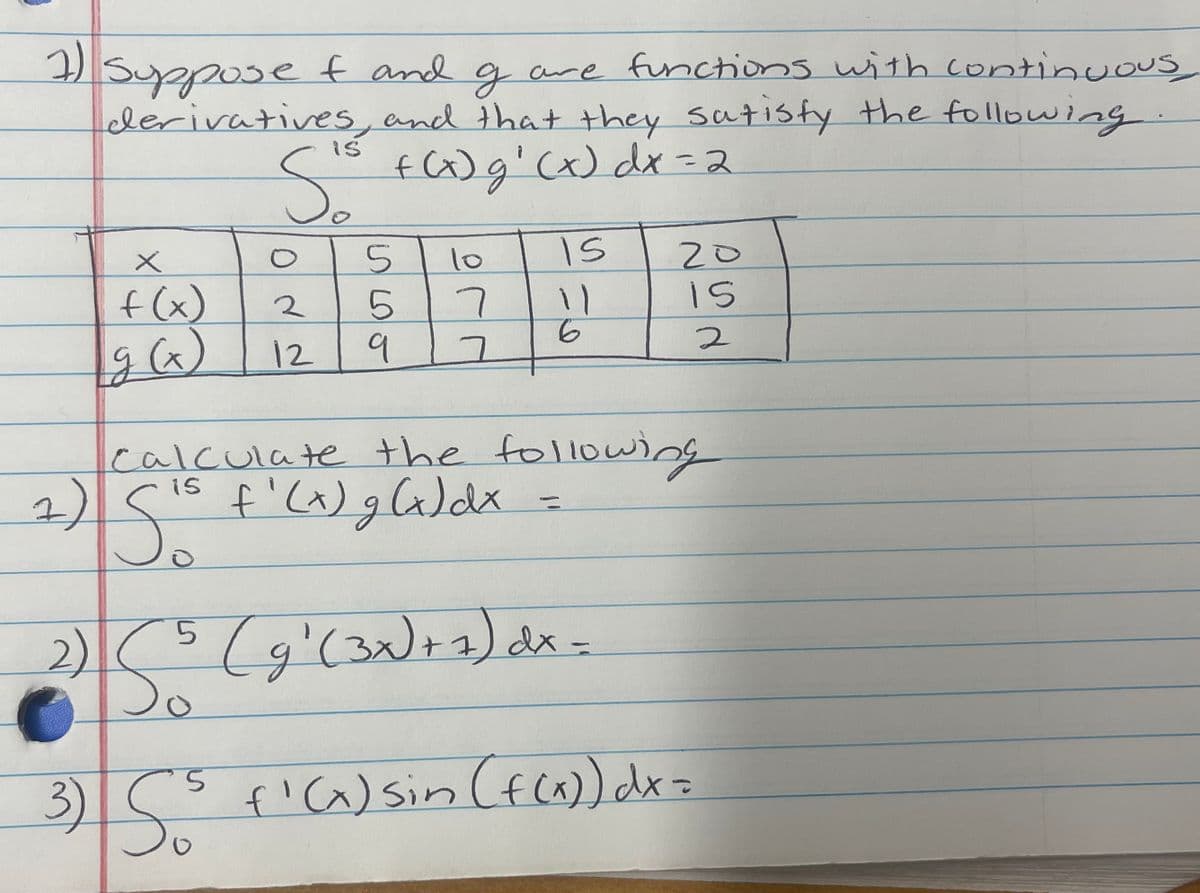 1) Suppose f and g are functions with continuous
derivatives, and that they satisfy the following.
∫₀¹⁵ f(x) g'(x) dx = 2
x 0 5 10 15 20
f(x) 2 5 7 11 15
g(x) 12 9 7 6 2
calculate the following
1) ∫₀¹⁵ f'(x) g(x) dx =
2) ∫₀⁵ (g'(3x)+1) dx =
3) ∫₀⁵ f'(x) sin(f(x)) dx =